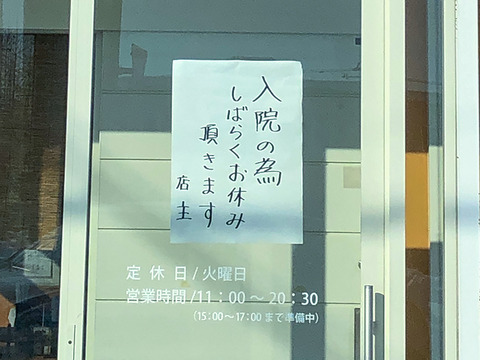 入院の為
しばらくお休み
頂きます
店主
定休日/火曜日
営業時間/11:00～20:30
(15:00～17:00まで準備中)